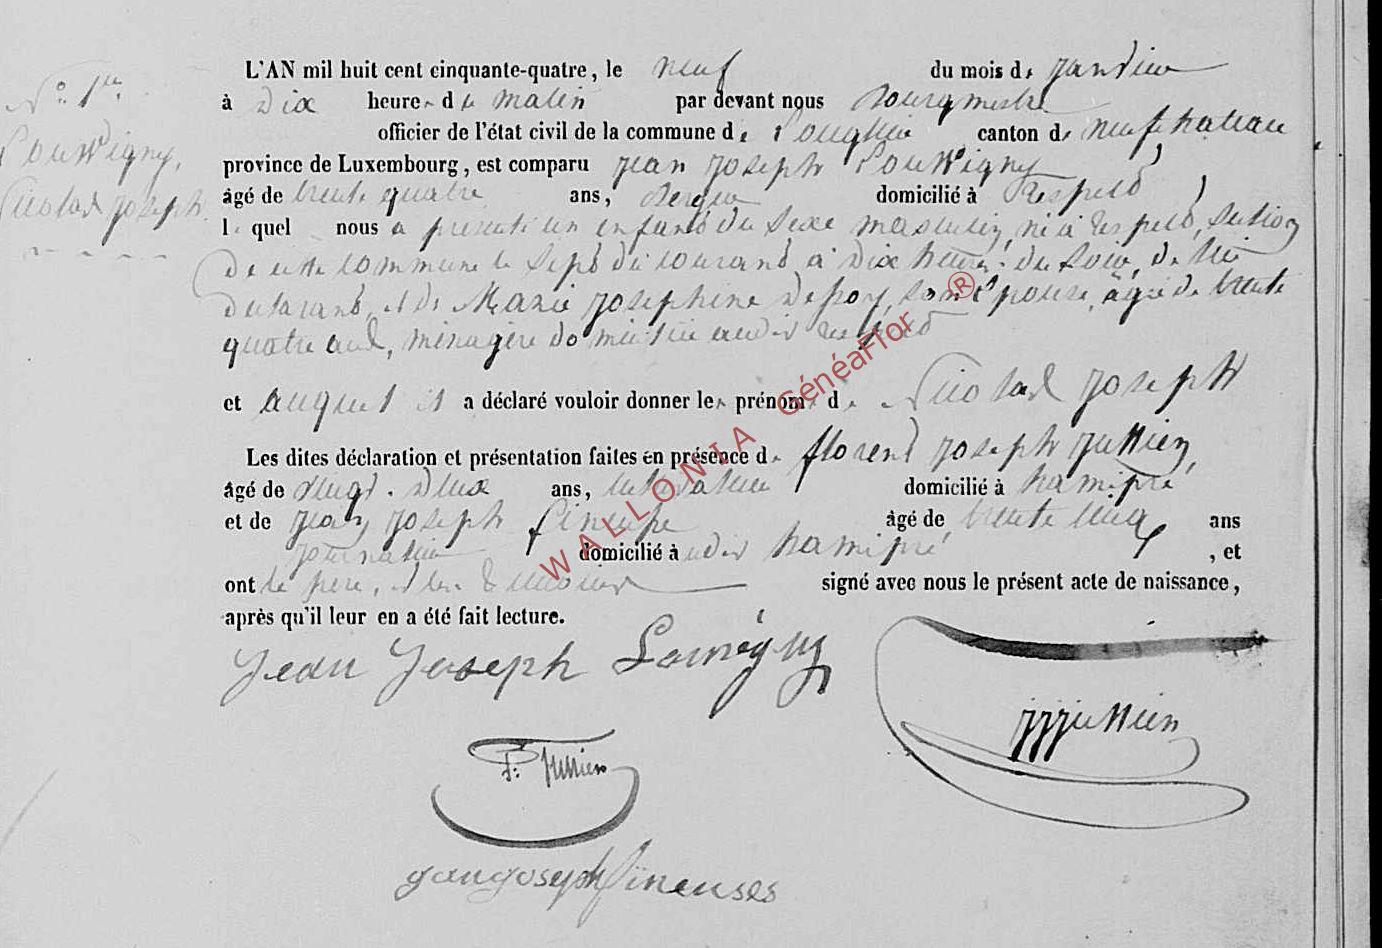 N° 1er
Louvvigny,
Nicolas Joseph
L'AN mil huit cent cinquante-quatre, le neuf du mois de janvier
à Dix heures du matin par devant nous Bourgmestre
officier de l'état civil de la commune de Longlier canton de neufchateau
province de Luxembourg, est comparu jean joseph Louvvigny,
âgé de trente quatre ans, Berger domicilié à Respelt,
lequel nous a présenté un enfant du sexe masculin, né à Respelt, section
de cette commune le sept du courant à dix heures du soir, de lui
déclarant, et de Marie josephine Depoy, son épouse, âgée de trente
quatre ans, ménagère domiciliée audit Respelt
et auquel il a déclaré vouloir donner les prénoms de Nicolas joseph
Les dites déclaration et présentation faites en présence de florent joseph jullien,
âgé de vingt-deux ans, domicilié à hamipré
et de jean joseph âgé de trente ans
journalier domicilié audit hamipré, et
ont le père, et les témoins signé avec nous le présent acte de naissance,
après qu'il leur en a été fait lecture.
Jean Joseph Louvigny
jjjullien
F: Jullien
jean joseph
WALLONIA GénéaFlor ®